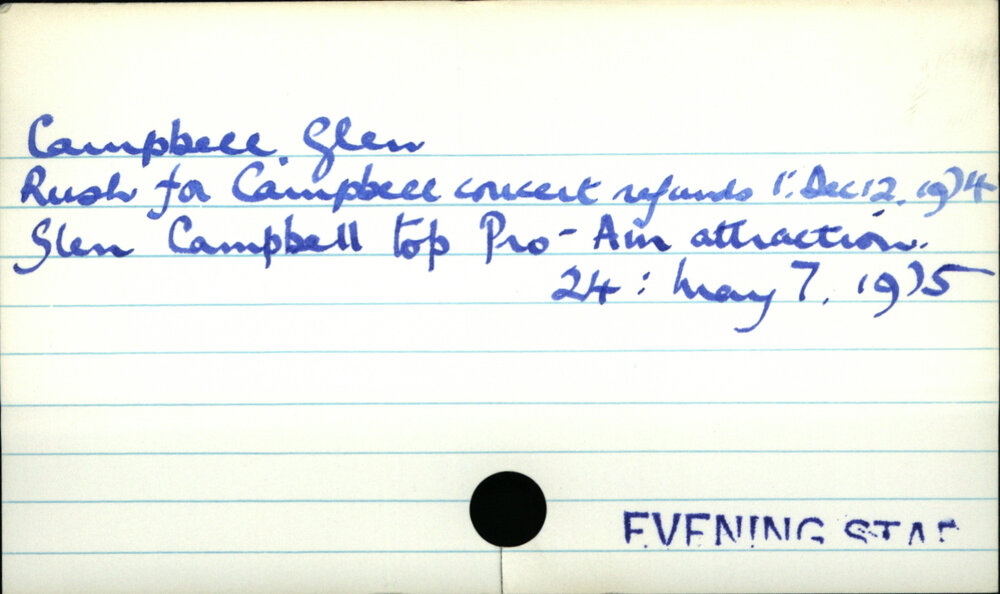 Campbell. Glen
Rush for Campbell concert refunds 1: Dec 12, 1974
Glen Campbell top Pro-Am attraction.
24: May 7, 1975
EVENING STAR